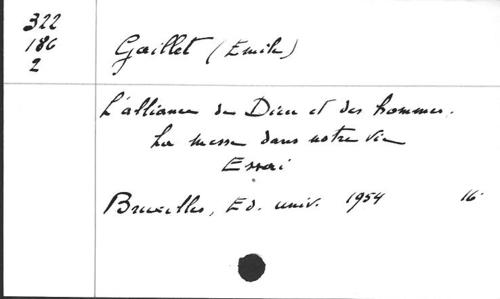 322
186
2
Gaillet (Emile)
L'alliance de Dieu et des hommes.
La messe dans notre vie
Essai
Bruxelles, Ed. univ. 1954 16